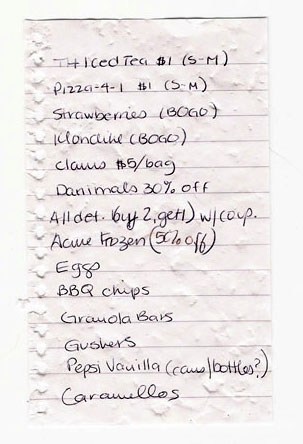 TH Iced Tea $1 (S-M)
Pizza-4-1 $1 (S-M)
Strawberries (BOGO)
Klondike (BOGO)
Clams $5/bag
Danimals 30% off
All det. (buy 2, get 1) w/coup.
Acme Frozen (50% off)
Eggs
BBQ chips
Granola Bars
Gushers
Pepsi Vanilla (cans/bottles?)
Caramellos